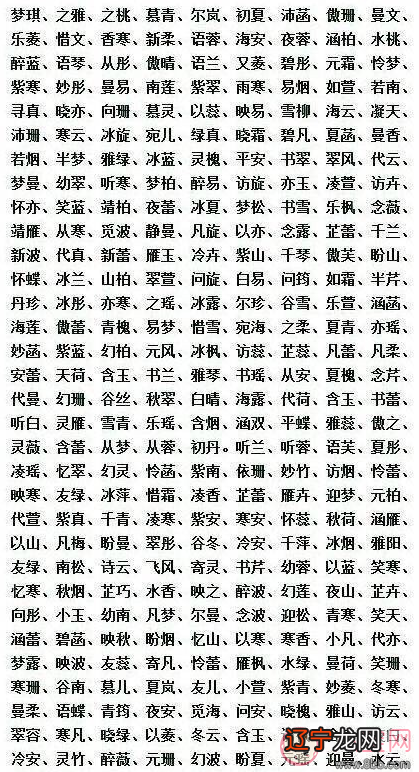 梦琪、之雅、之桃、慕青、尔岚、初夏、沛菡、傲珊、曼文、
乐菱、惜文、香寒、新柔、语蓉、海安、夜蓉、涵柏、水桃、
醉蓝、语琴、从彤、傲晴、语兰、又菱、碧彤、元霜、怜梦、
紫寒、妙彤、曼易、南莲、紫翠、雨寒、易烟、如萱、若南、
寻真、晓亦、向珊、慕灵、以蕊、映易、雪柳、海云、凝天、
沛珊、寒云、冰旋、宛儿、绿真、晓霜、碧凡、夏菡、曼香、
若烟、半梦、雅绿、冰蓝、灵槐、平安、书翠、翠风、代云、
梦曼、幼翠、听寒、梦柏、醉易、访旋、亦玉、凌萱、访卉、
怀亦、笑蓝、靖柏、夜蕾、冰夏、梦松、书雪、乐枫、念薇、
靖雁、从寒、觅波、静曼、凡旋、以亦、念露、芷蕾、千兰、
新波、代真、新蕾、雁玉、冷卉、紫山、千琴、傲芙、盼山、
怀蝶、冰兰、山柏、翠萱、问旋、白易、问筠、如霜、半芹、
丹珍、冰彤、亦寒、之瑶、冰露、尔珍、谷雪、乐萱、涵菡、
海莲、傲蕾、青槐、易梦、惜雪、宛海、之柔、夏青、亦瑶、
妙菡、紫蓝、幻柏、元风、冰枫、访蕊、芷蕊、凡蕾、凡柔、
安蕾、天荷、含玉、书兰、雅琴、书瑶、从安、夏槐、念芹、
代曼、幻珊、谷丝、秋翠、白晴、海露、代荷、含玉、书蕾、
听白、灵雁、雪青、乐瑶、含烟、涵双、平蝶、雅蕊、傲之、
灵薇、含蕾、从梦、从蓉、初丹。听兰、听蓉、语芙、夏彤、
凌瑶、忆翠、幻灵、怜菡、紫南、依珊、妙竹、访烟、怜蕾、
映寒、友绿、冰萍、惜霜、凌香、芷蕾、雁卉、迎梦、元柏、
代萱、紫真、千青、凌寒、紫安、寒安、怀蕊、秋荷、涵雁、
以山、凡梅、盼曼、翠彤、谷冬、冷安、千萍、冰烟、雅阳、
友绿、南松、诗云、飞风、寄灵、书芹、幼蓉、以蓝、笑寒、
忆寒、秋烟、芷巧、水香、映之、醉波、幻莲、夜山、芷卉、
向彤、小玉、幼南、凡梦、尔曼、念波、迎松、青寒、笑天、
涵蕾、碧菡、映秋、盼烟、忆山、以寒、寒香、小凡、代亦、
梦露、映波、友蕊、寄凡、怜蕾、雁枫、水绿、曼荷、笑珊、
寒珊、谷南、慕儿、夏岚、友儿、小萱、紫青、妙菱、冬寒、
曼柔、语蝶、青筠、夜安、觅海、问安、晓槐、雅山、访云、
翠容、寒凡、晓绿、以菱、冬云、含玉、
冷安、灵竹、醉薇、元珊、幻波、盼夏、元瑶、迎曼、水云、
辽宁龙网